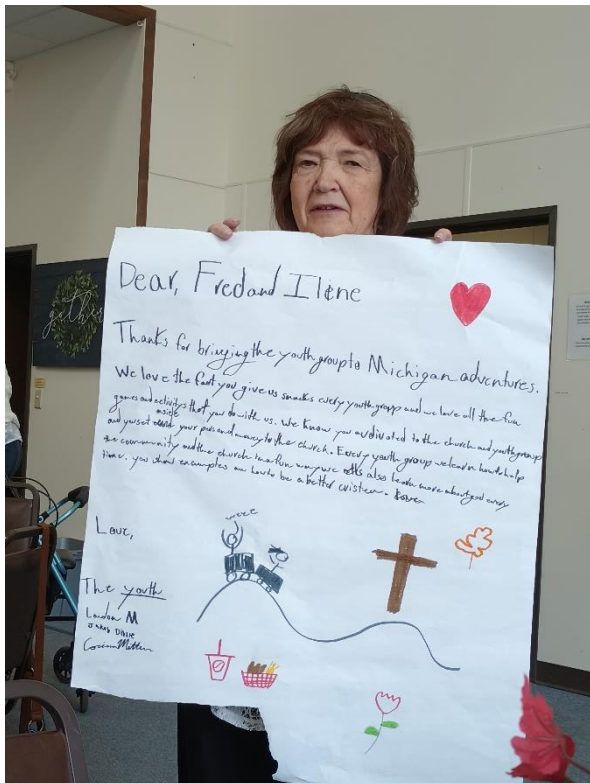 gather
Dear, Fred and Ilene
Thanks for bringing the youth group to Michigan adventures.
We love the fact you give us snacks every youth group and we love all the fun
games and activities that you do with us. We know you are divoted to the church and youth group
aside
and you set your pers and money to the church. Every youth group we learn how to help
the community and the church in a fun way we also learn more about god every
time. you show examples on how to be a better cristien.
weee
Love,
The youth
Landon M